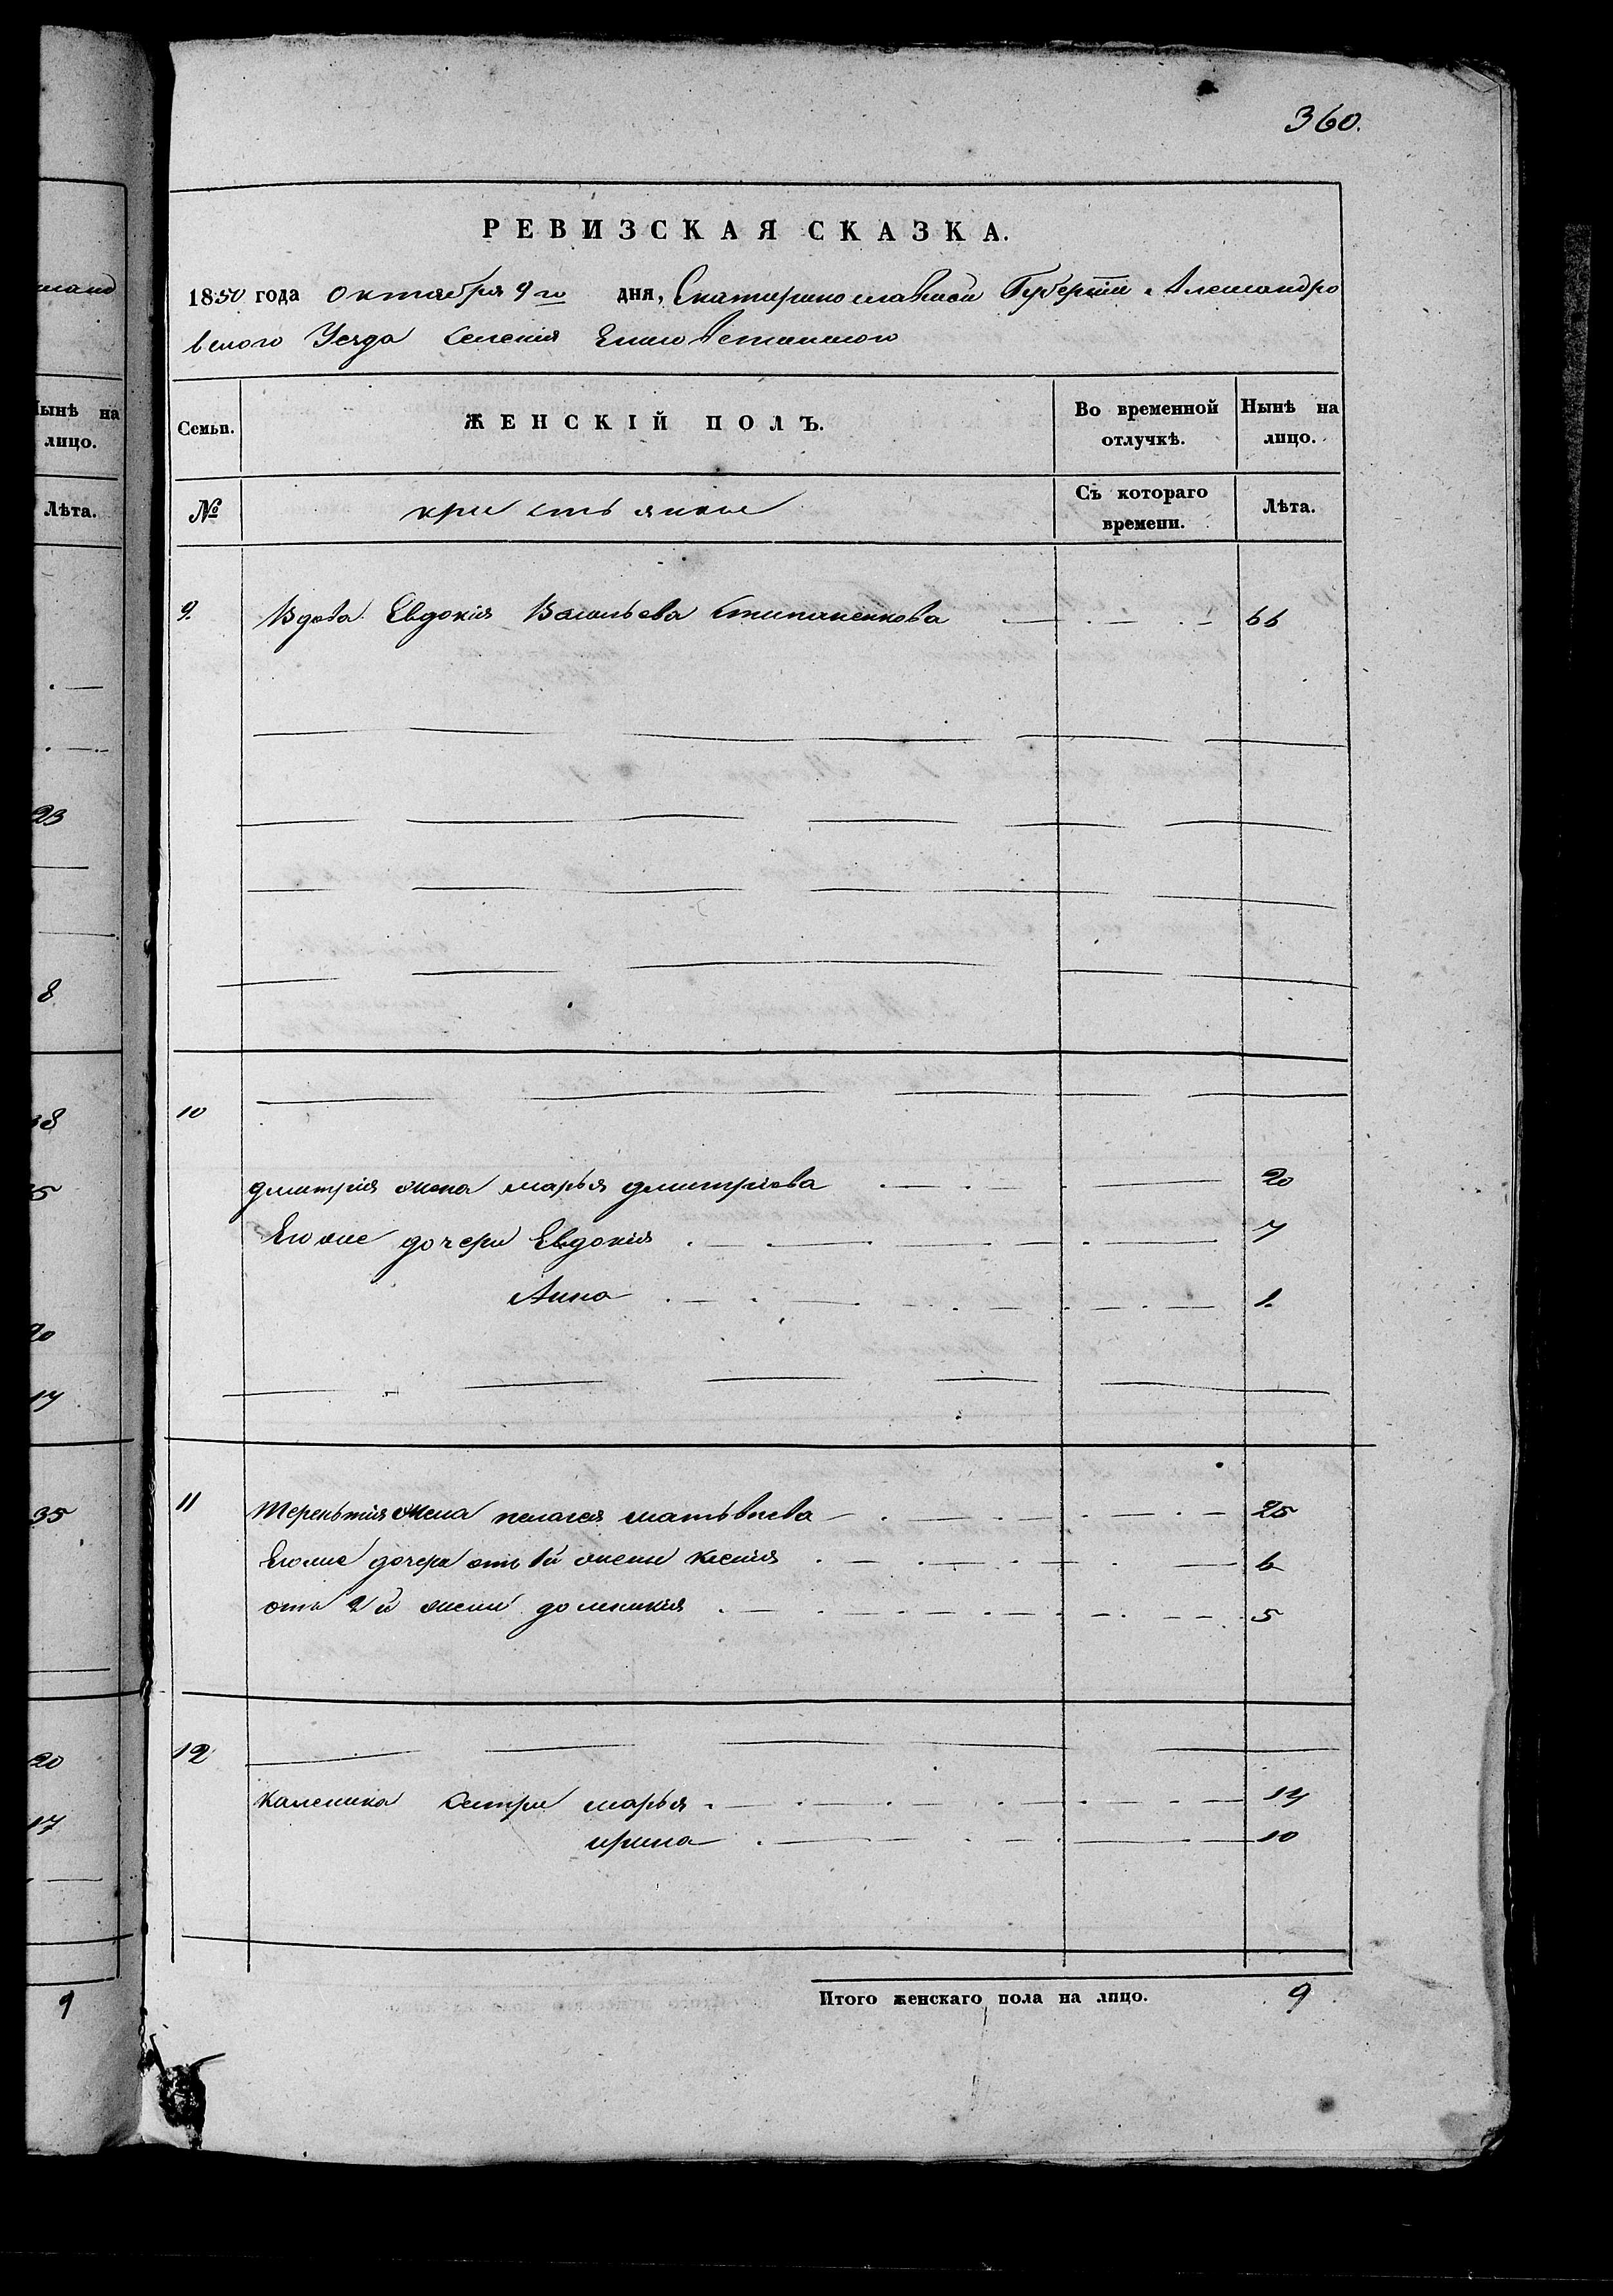 360.
РЕВИЗСКАЯ СКАЗКА.
1850 года октября 9го дня, Екатеринославской Губернии Александро
вского Уезда Селения Елисаветинского
Семьи.
ЖЕНСКІЙ ПОЛЪ.
Во временной отлучкѣ.
Нынѣ на лицо.
№
крестьянъ
Съ котораго времени.
Лѣта.
9. Вдова Евдокія Васильева Степаненкова 66
10
дмитрія жена марья дмитріева 20
Его же дочери Евдокія 7
Анна 1.
11 Терентія жена пелагея матвѣева 25
Его же дочери отъ 1й жены ксенія 6
отъ 2й жены домникія 5
12
каленика сестры марья 14
ирина 10
Итого женскаго пола на лицо. 9
Нынѣ на
лицо.
Лѣта.
23
8
20
17
35
20
17
9